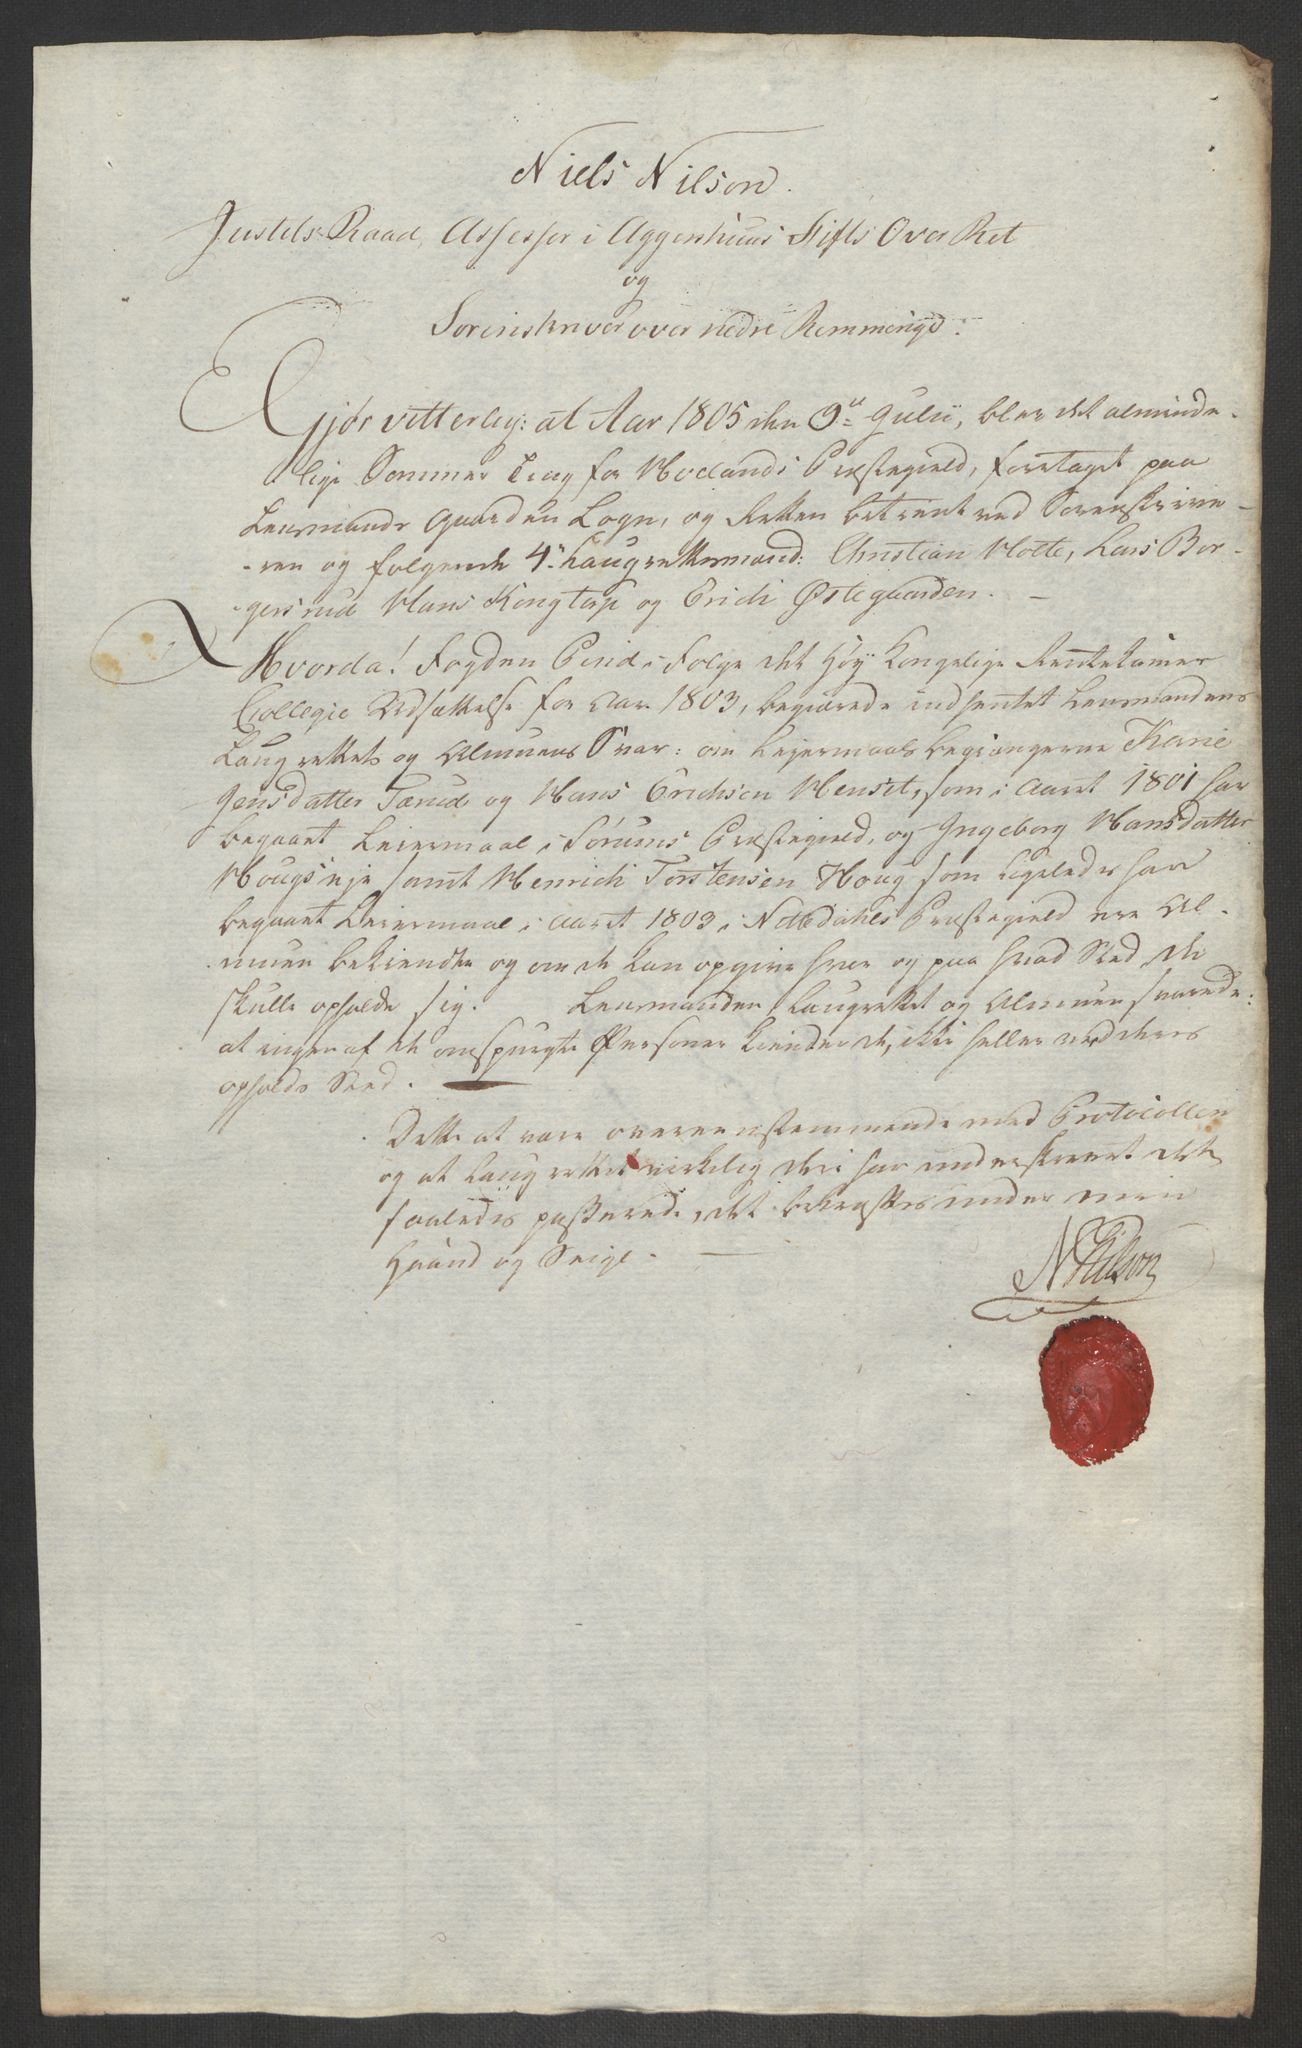 Niels Nilson.
Justits Raad, Assessor i Aggershuus Stifts Over Ret
og
Sorenskriver over nedre Rommerige.
Gjør vitterlig: at Aar 1805 den 9de Julii, blev det alminde-
lige Sommer Ting for Høelands Præstegield, foretaget paa
Lensmands Gaarden Logn, og Retten betient ved Sorenskrive-
-ren og følgende 4re Laugrettesmænd: Christian Motte, Lars Bør-
-gersrud Hans Kongtorp og Erich Østegaarden. -
Hvorda! Fogden Eind i Følge det Høy Kongelige Rentekamer
Collegie Udsættelse for Aar 1803, begiærede indhentet Lensmandens
Laugrettets og Almuens Svar: om Leiermaals begiængerne Karie
Jensdatter Tærud og Hans Erichsen Menset, som i Aaret 1801 har
begaaet Leiermaal i Sørums Præstegield, og Ingeborg Hansdatter
Hougs eje samt Henrich Torstensen Houg som ligeledes har
begaaet Leiermaal i Aaret 1803 i Nittedahls Præstegield ere Al-
muen bekiendte og om de kan opgive hvor og paa hvad Sted de
skulle opholde sig. Lensmanden Laugrettet og Almuen svarede:
at ingen af de omspurgte Personer kiender de, ikke heller ved deres
opholds Sted.
Dette at være overeenstemmende med Protocollen
og at Laugrettet virkelig der har underskrevet det
saaledes passerede, det bekræftes under min
Haand og Seigl. -
NNilson